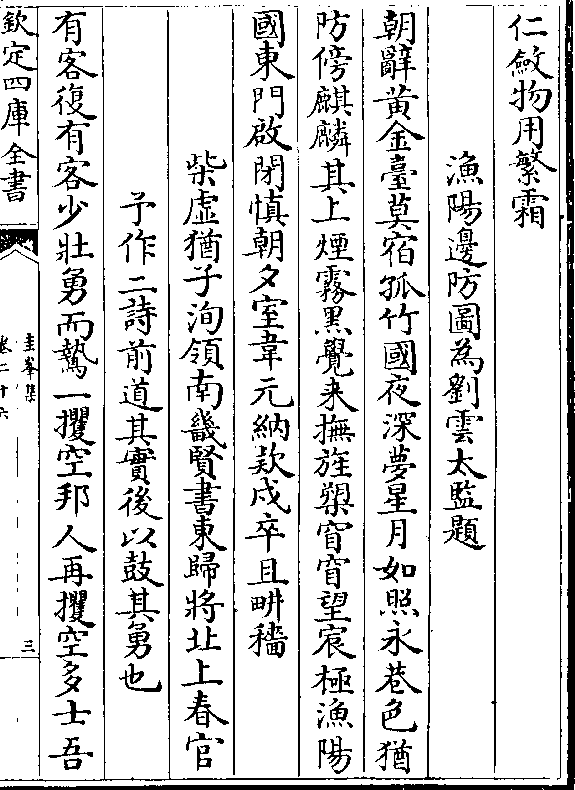 仁斂物用繁霜
漁陽邊防圖為劉雲太監題
朝辭黃金臺莫宿孤竹國夜深夢星月如照永巷色猶
防傍麒麟其上煙霧黑覺来撫旌槊窅窅望宸極漁陽
國東門啟閉慎朝夕室韋元納欵戍卒且畊穡
柴虛猶子洵領南畿賢書東歸將北上春官
予作二詩前道其實後以鼓其勇也
有客復有客少壯勇而鷙一攫空邦人再攫空多士吾
欽定四庫全書
圭峯集
卷二十六
三